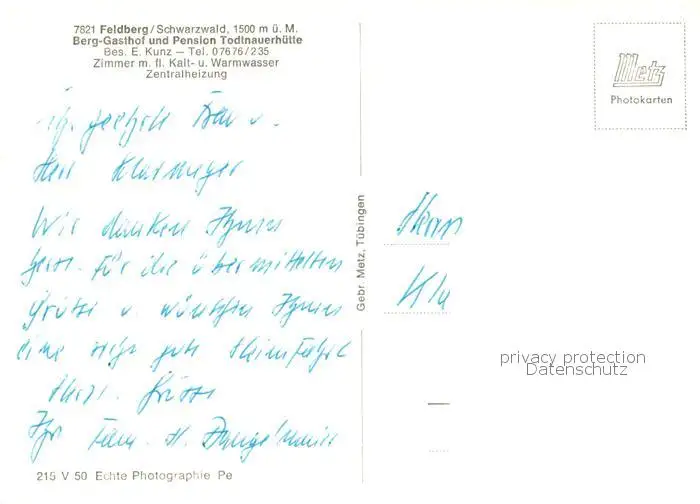 7821 Feldberg/Schwarzwald, 1500 m ü. M.
Berg-Gasthof und Pension Todtnauerhütte
Bes. E. Kunz — Tel. 07676/235
Zimmer m. fl. Kalt- u. Warmwasser
Zentralheizung
Metz
Photokarten
geehrte Frau u.
Herr
Wir danken Ihnen
herzl. für die übermittelten
Grüsse u. wünschen Ihnen
eine recht gute Heimfahrt
Herzl. Grüsse
Ihr Fam. H.
Gebr. Metz, Tübingen
Kla
privacy protection
Datenschutz
215 V 50 Echte Photographie Pe